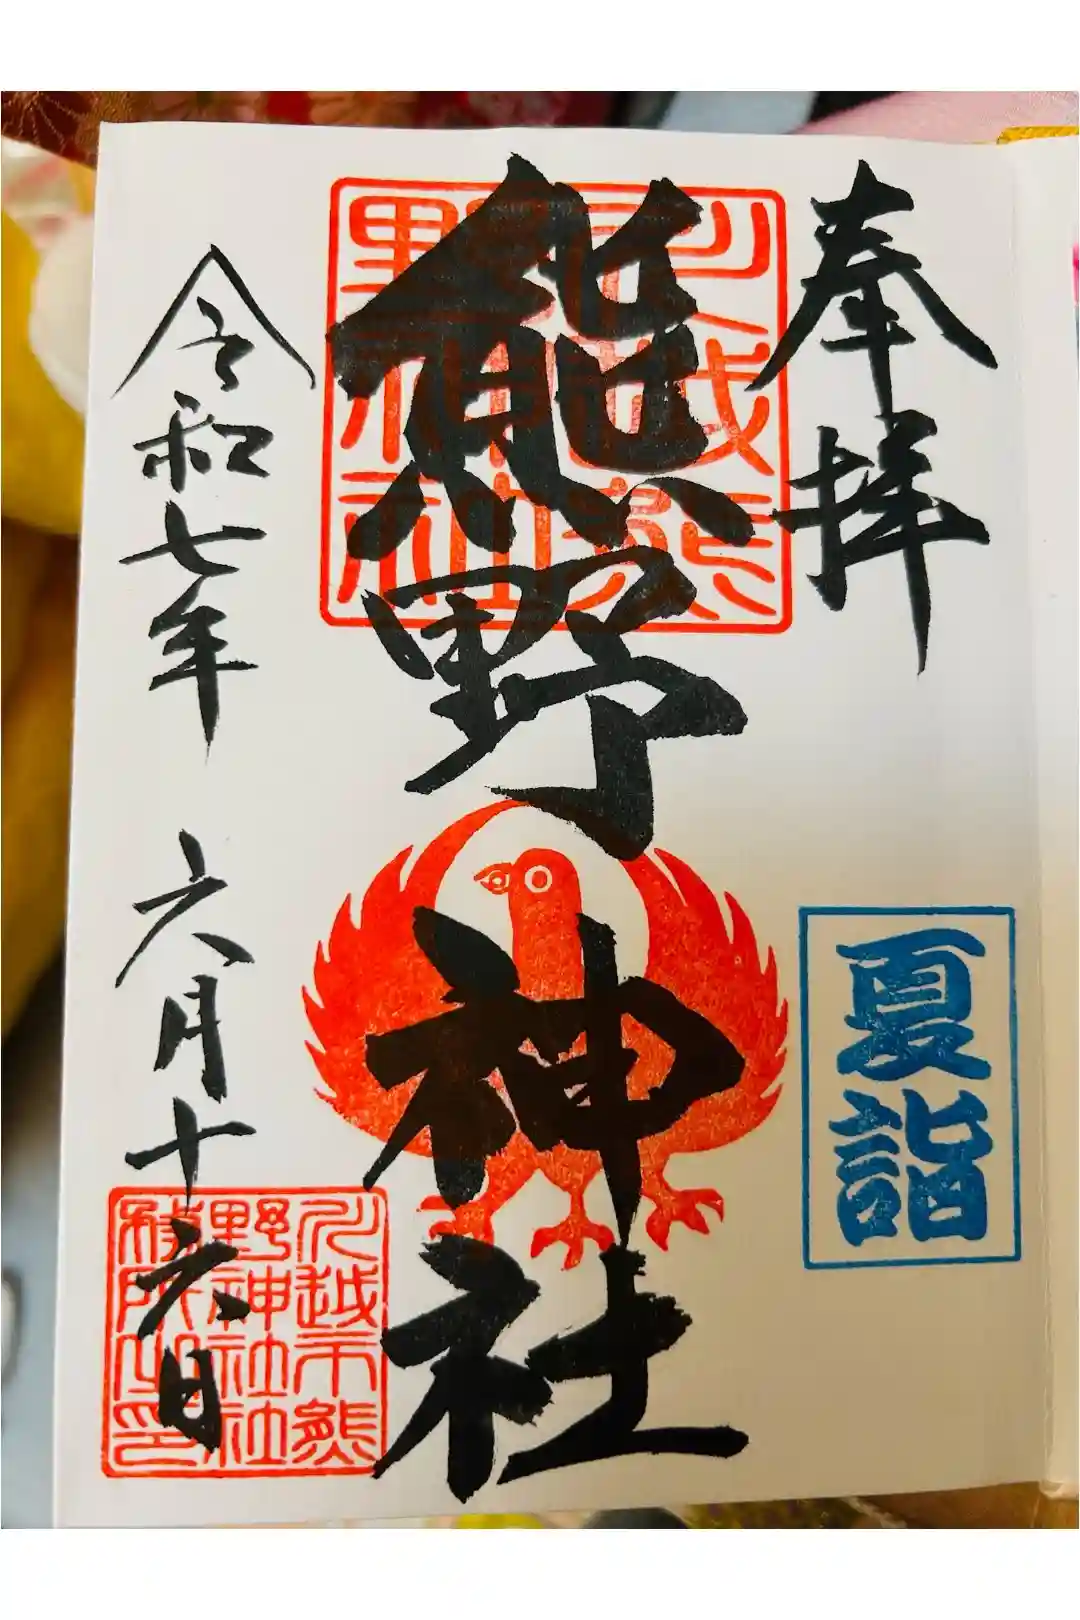 奉拝
夏詣
熊野神社
川越熊
野神社
令和七年 六月十六日
川越市熊
野神社社
務所之印